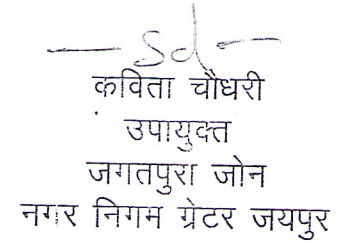 — sd —
कविता चौधरी
उपायुक्त
जगतपुरा जोन
नगर निगम ग्रेटर जयपुर